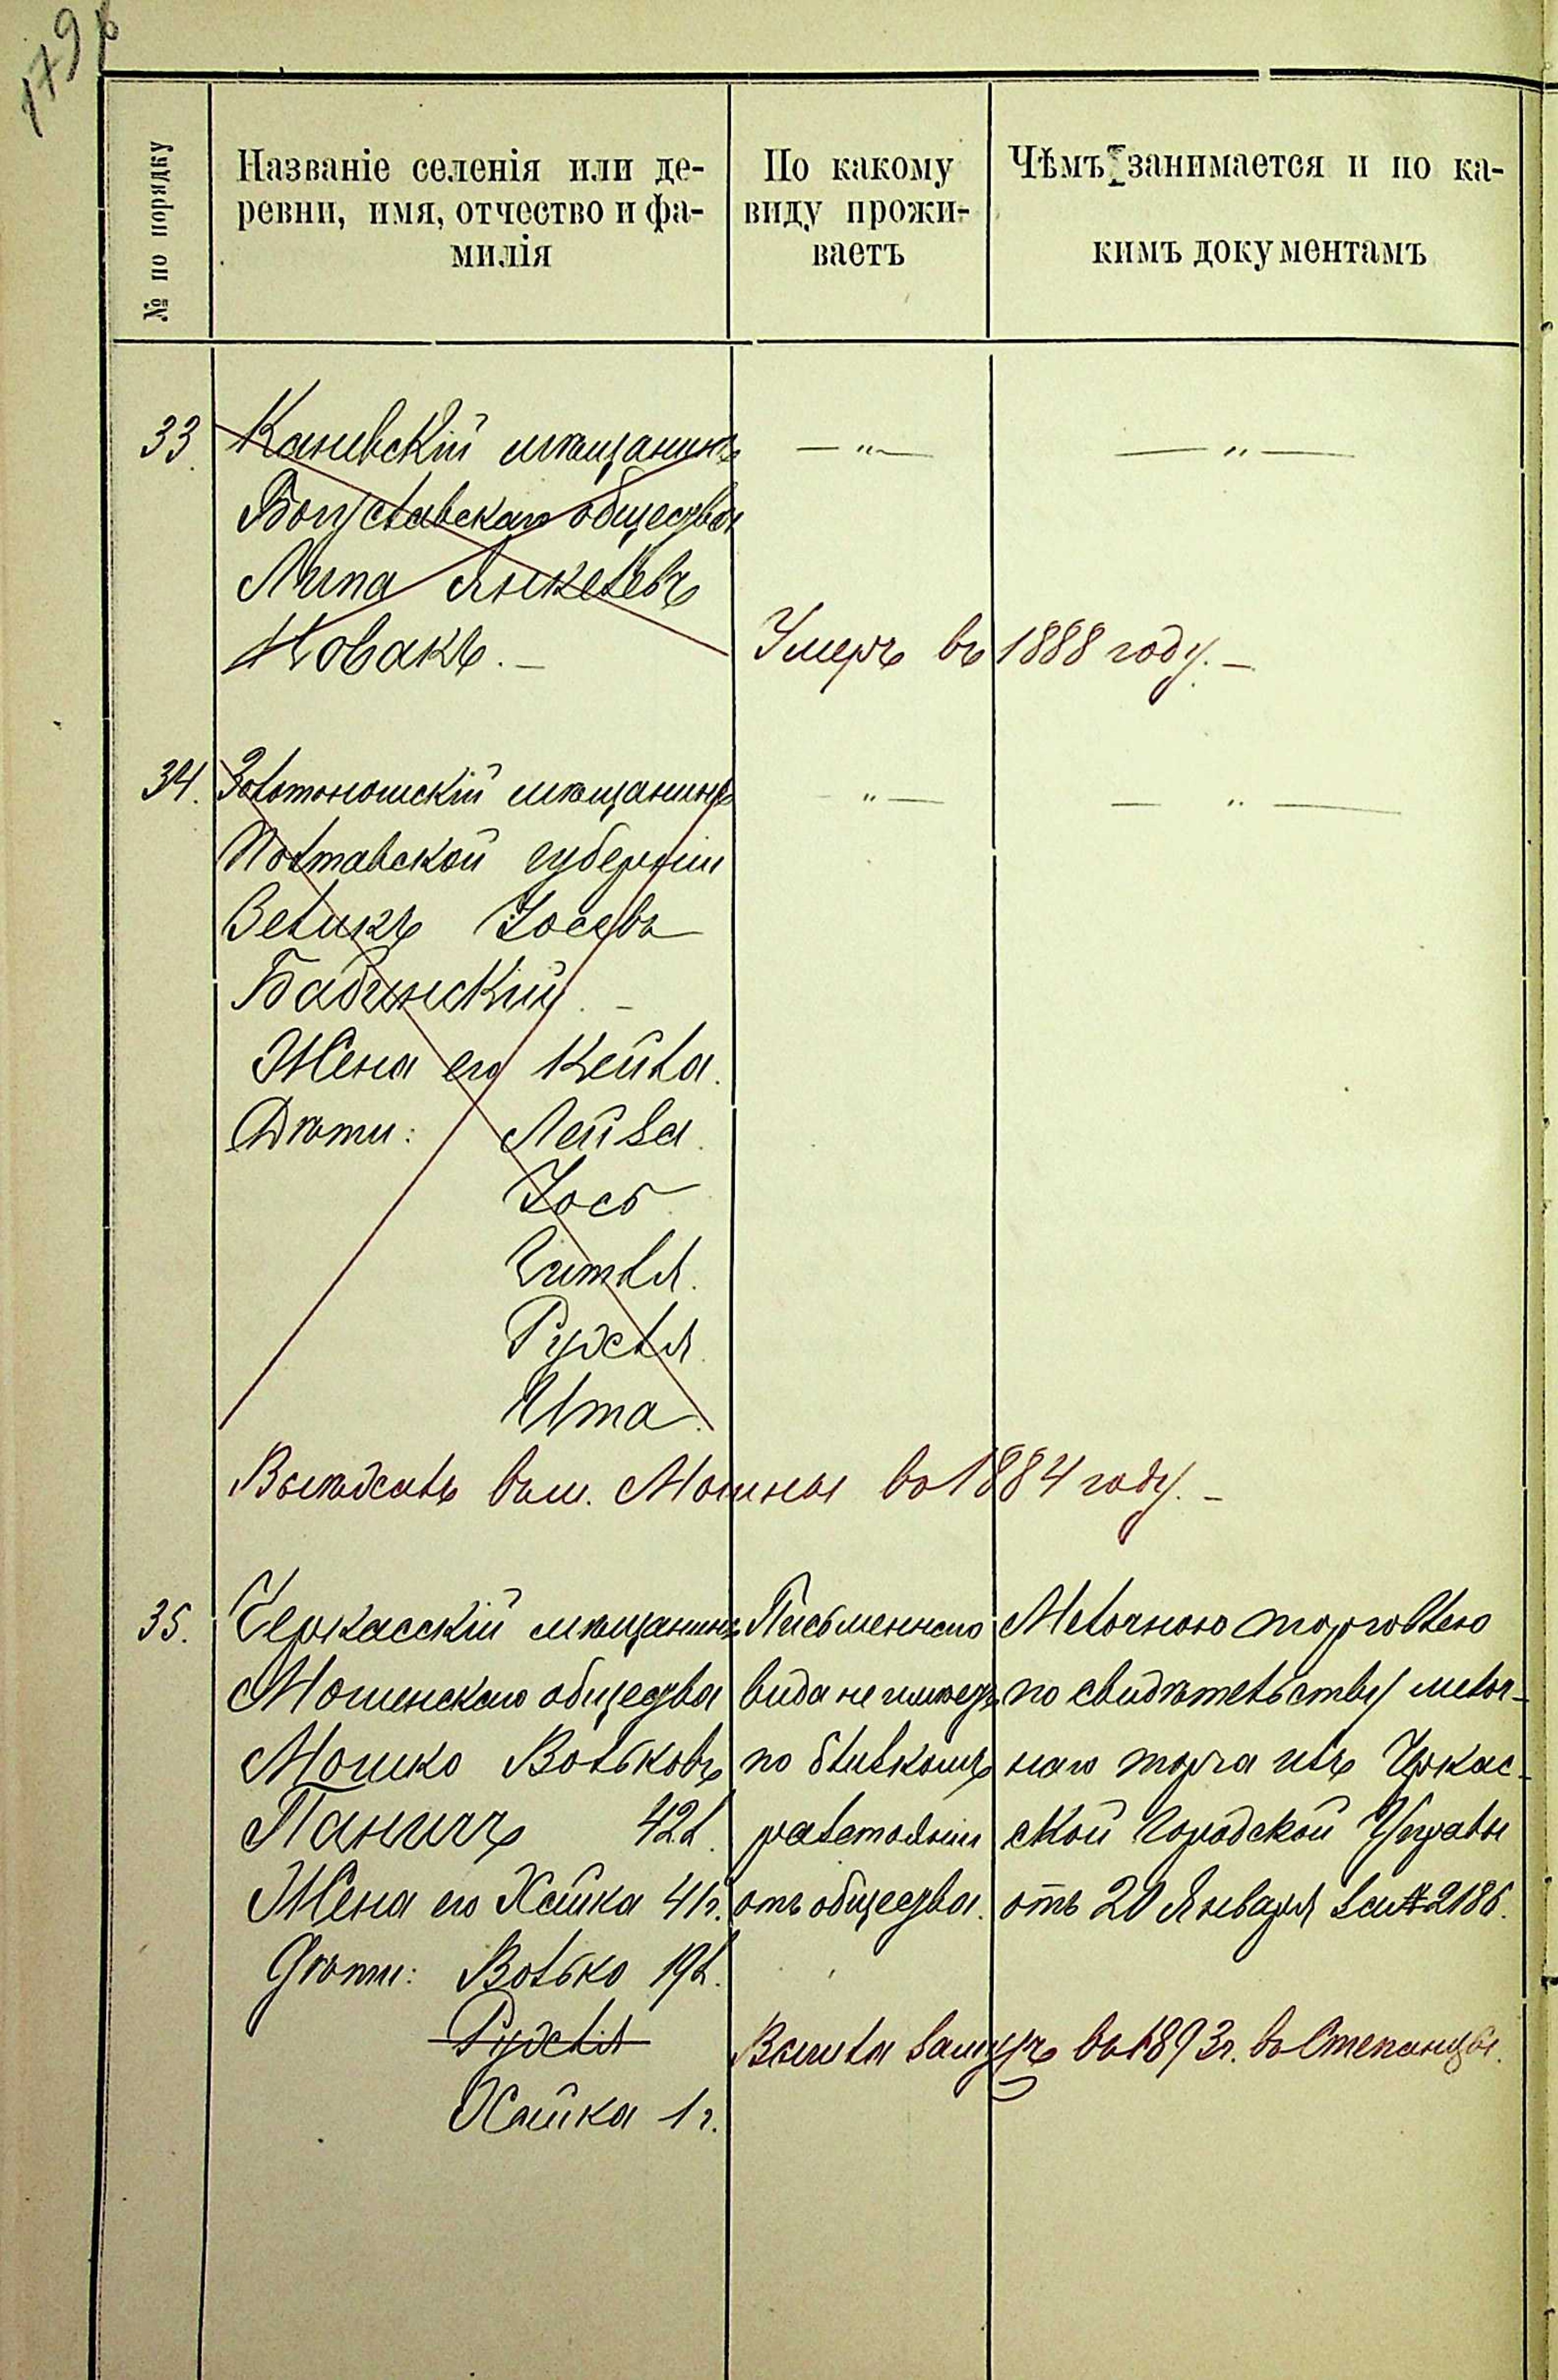 179
№ по порядку
Названіе селенія или де-
ревни, имя, отчество и фа-
милія
По какому
виду прожи-
ваетъ
Чѣмъ занимается и по ка-
кимъ документамъ
33. Каневскій мѣщанинъ — „ — — „ —
Богуславскаго общества
Липа Янкелевъ
Новакъ. — Умеръ въ 1888 году. —
34. Золотоношскій мѣщанинъ — „ — — „ —
Полтавской губерніи
Зеликъ Іосевъ
Бабинскій. —
Жена его Кейла.
Дѣти: Лейза.
Іось
Гитля.
Рухля.
Ита.
Выѣхалъ въ м. Мошны въ 1884 году. —
35. Черкасскій мѣщанинъ
Мошенскаго общества
Мошко Вольковъ
Паничъ 42 л.
Жена его Хайка 41 г.
Дѣти: Волько 19 л.
Рухля
Хайка 1 г.
Письменнаго
вида не имѣетъ
по близкомъ
разстояніи
отъ общества.
Мелочною торговлею
по свидѣтельству мелоч-
наго торга изъ Черкас-
ской Городской Управы
отъ 20 Января за № 2186.
Вышла замужъ въ 1893 г. въ Степанцы.